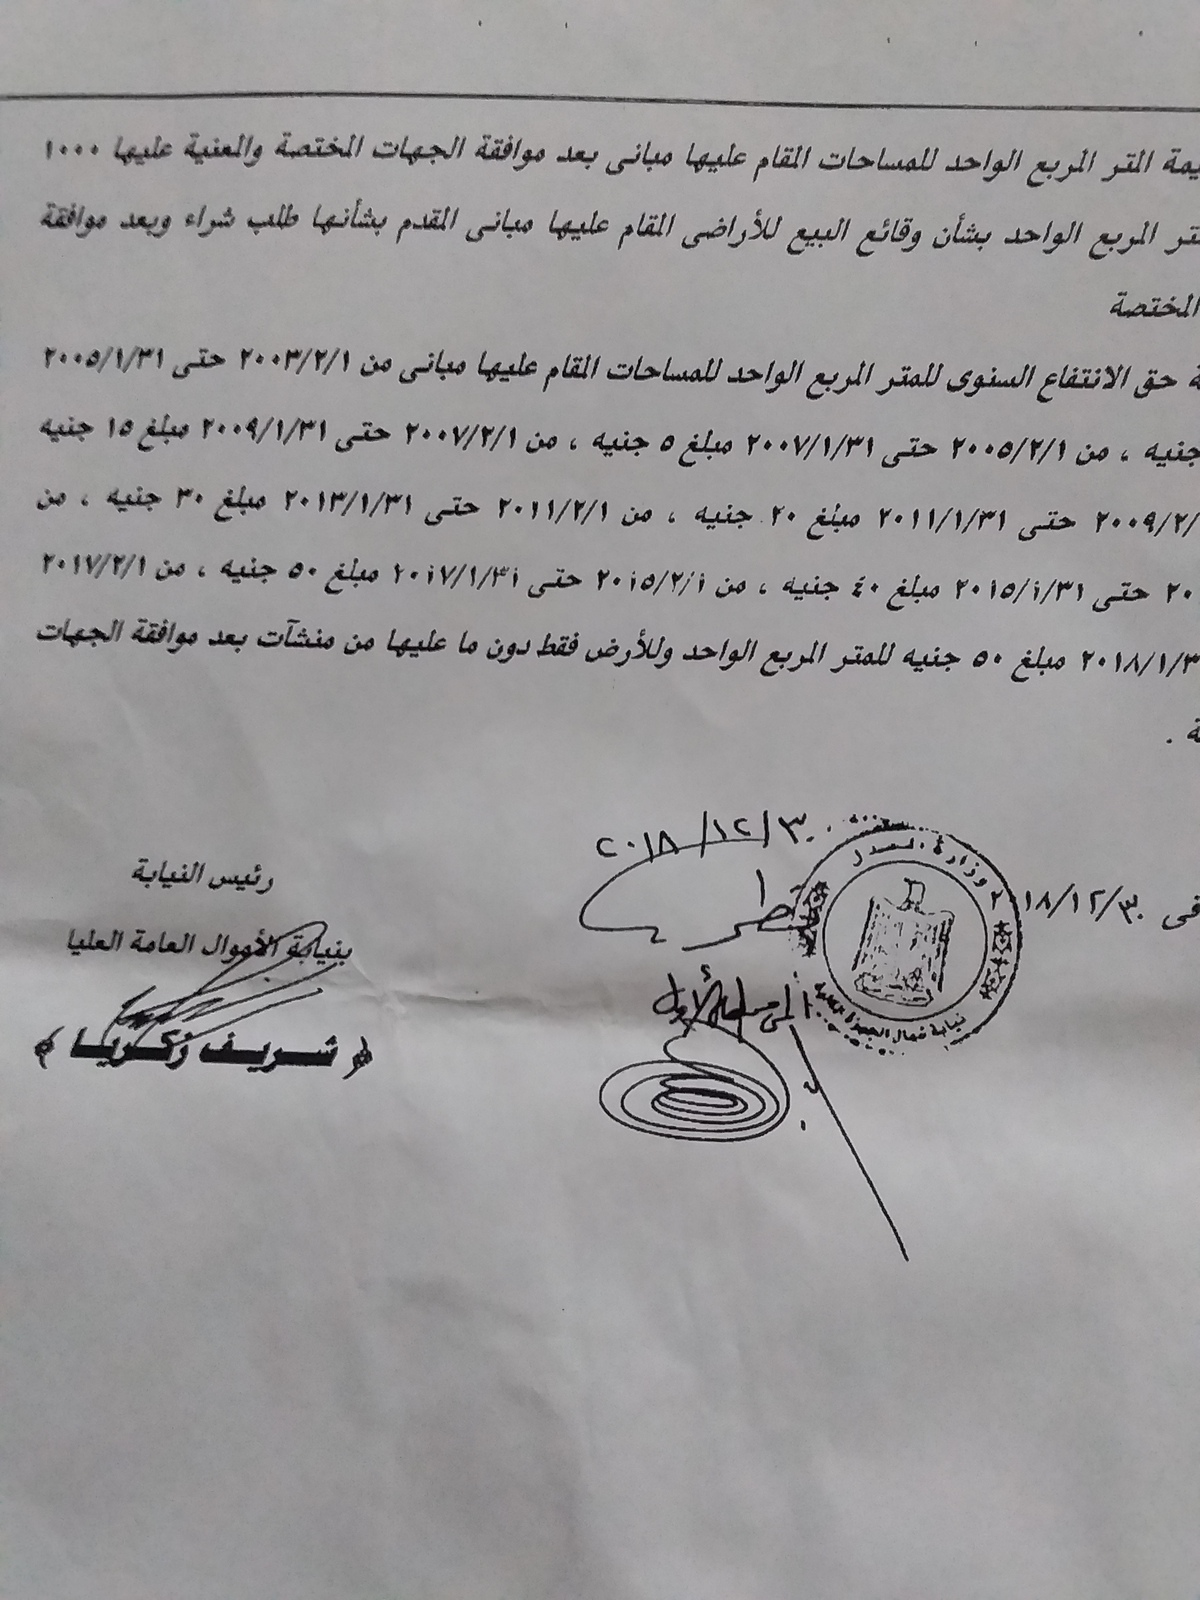 يمة المتر المربع الواحد للمساحات المقام عليها مبانى بعد موافقة الجهات المختصة والمعنية عليها ١٠٠٠
تر المربع الواحد بشأن وقائع البيع للأراضى المقام عليها مبانى المقدم بشأنها طلب شراء وبعد موافقة
المختصة
ة حق الانتفاع السنوى للمتر المربع الواحد للمساحات المقام عليها مبانى من ٢٠٠٣/٢/١ حتى ٢٠٠٥/١/٣١
جنيه ، من ٢٠٠٥/٢/١ حتى ٢٠٠٧/١/٣١ مبلغ ٥ جنيه ، من ٢٠٠٧/٢/١ حتى ٢٠٠٩/١/٣١ مبلغ ١٥ جنيه
٢٠٠٩/٢/ حتى ٢٠١١/١/٣١ مبلغ ٢٠ جنيه ، من ٢٠١١/٢/١ حتى ٢٠١٣/١/٣١ مبلغ ٣٠ جنيه ، من
٢٠ حتى ٢٠١٥/١/٣١ مبلغ ٤٠ جنيه ، من ٢٠١٥/٢/١ حتى ٢٠١٧/١/٣١ مبلغ ٥٠ جنيه ، من ٢٠١٧/٢/١
٢٠١٨/١/٣ مبلغ ٥٠ جنيه للمتر المربع الواحد وللأرض فقط دون ما عليها من منشآت بعد موافقة الجهات
ة .
٢٠١٨/١٢/٣٠
وزارة العدل
نيابة شمال الجيزة
فى ١٨/١٢/٣٠
رئيس النيابة
بنيابة الأموال العامة العليا
﴿ شريف زكريا ﴾